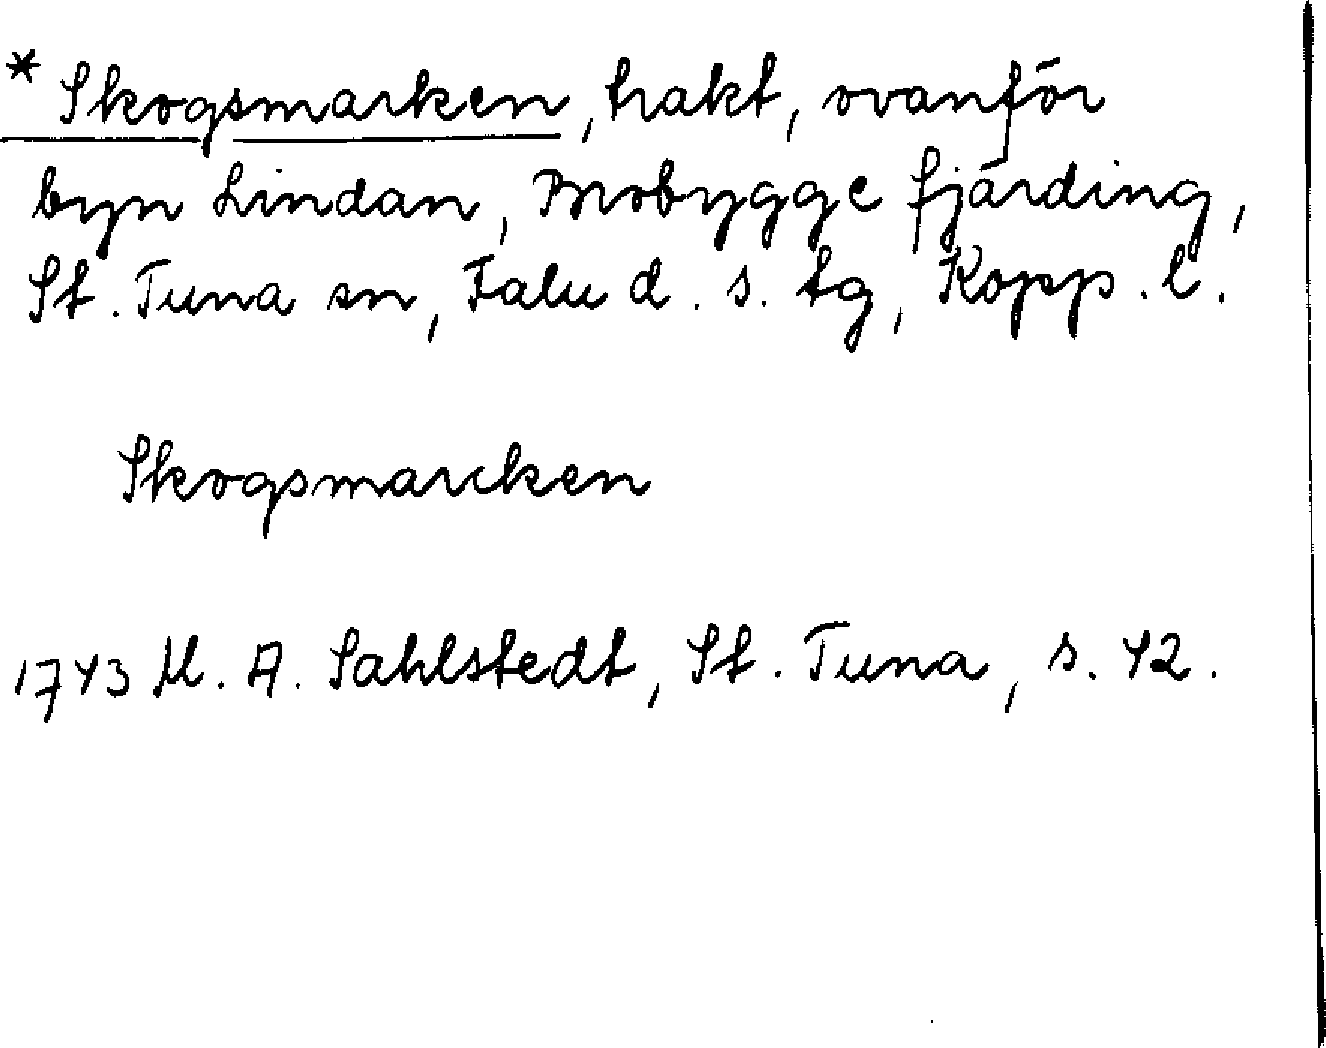 * Skogsmarken, trakt, ovanför
byn Lindan, Brobygge fjärding,
St. Tuna sn, Falu d. s. tg, Kopp. l.
Skogsmarcken
1743 M. A. Sahlstedt, St. Tuna, s. 42.